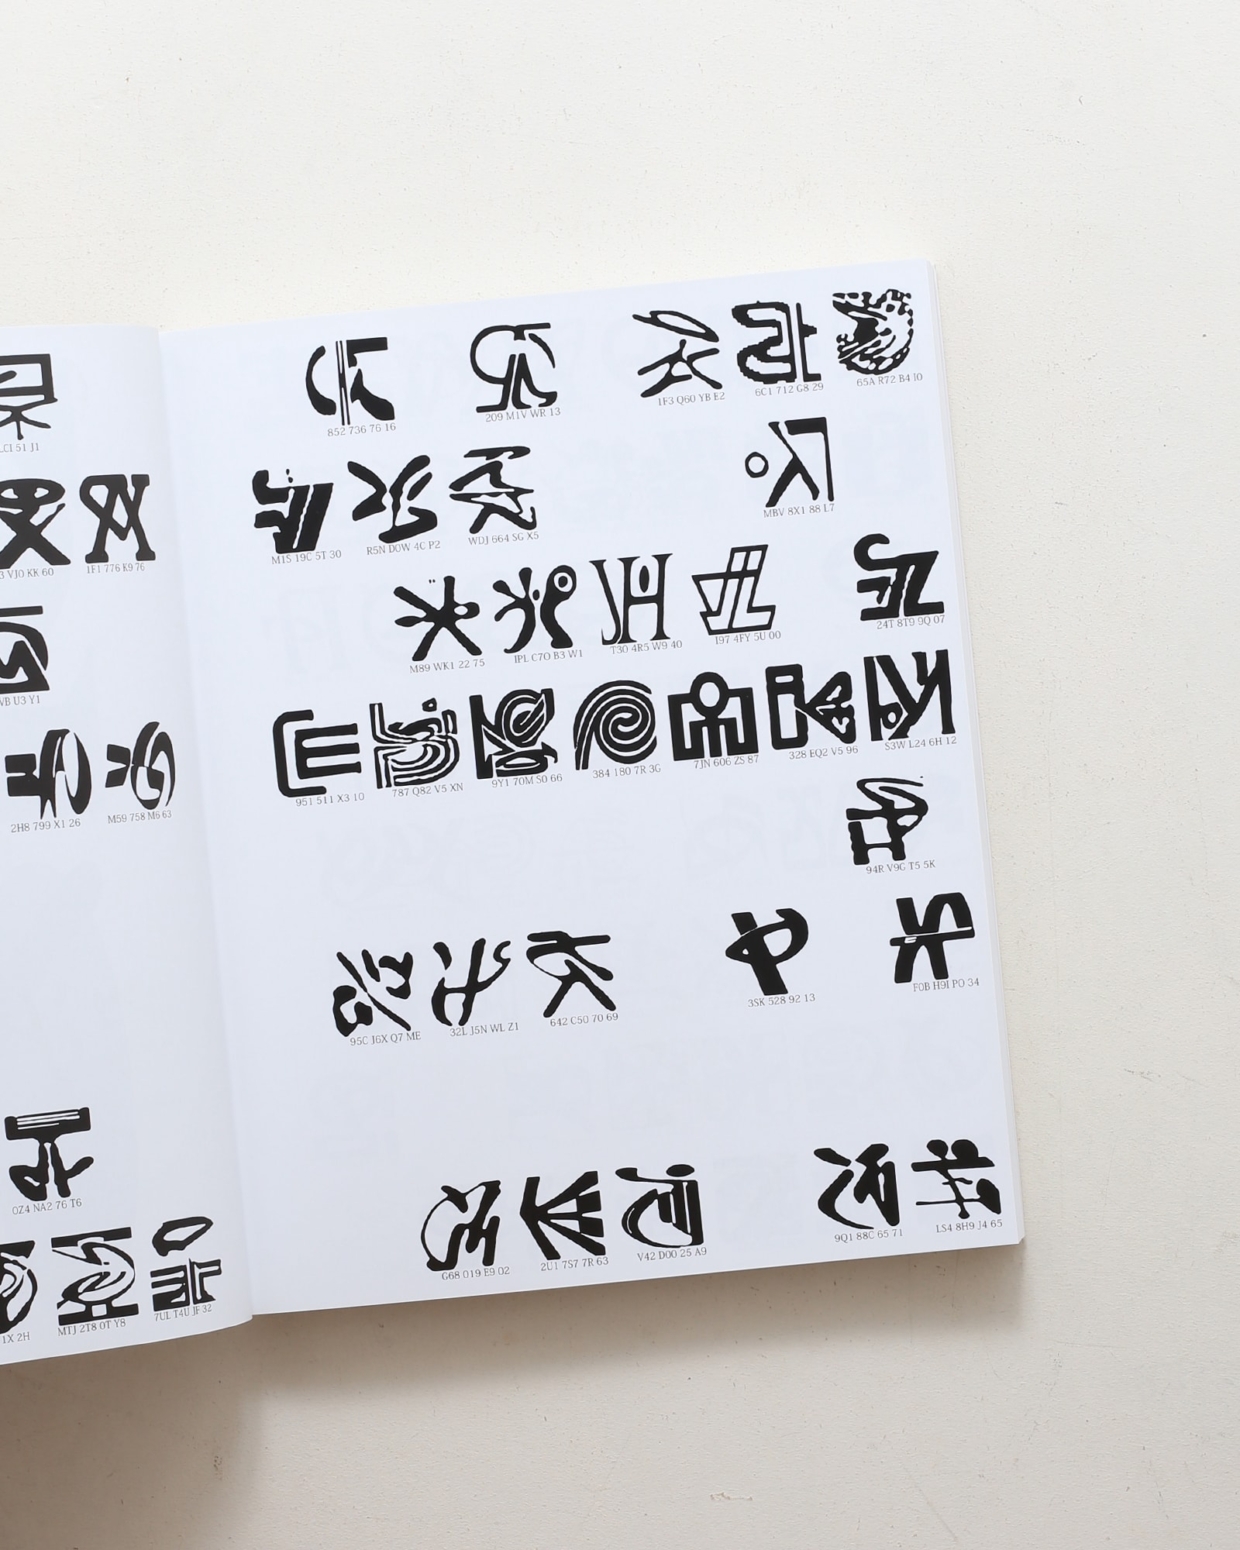 LCI 51 J1
VJ0 KK 60
1F1 776 K9 76
VB U3 Y1
2H8 799 X1 26
M59 758 M6 63
0Z4 NA2 76 T6
1X 2H
MTJ 2T8 0T Y8
7UL T4U JF 32
852 736 76 16
209 M1V WR 13
1F3 Q60 YB E2
6C1 712 G8 29
65A R72 B4 I0
MBV 8X1 88 L7
M1S 19C 5T 30
R5N D0W 4C P2
WDJ 664 SG X5
M89 WK1 22 75
IPL C7O B3 W1
T30 4R5 W9 40
I97 4FY 5U 00
24T 8T9 9Q 07
951 511 X3 10
787 Q82 V5 XN
9Y1 70M S0 66
384 180 7R 3G
7JN 606 ZS 87
328 EQ2 V5 96
S3W L24 6H 12
94R V9G T5 5K
95C J6X Q7 ME
32L J5N WL Z1
642 C50 70 69
3SK 528 92 13
F0B H9I PO 34
G68 019 E9 02
2U1 7S7 7R 63
V42 D00 25 A9
9Q1 88C 65 71
LS4 8H9 J4 65